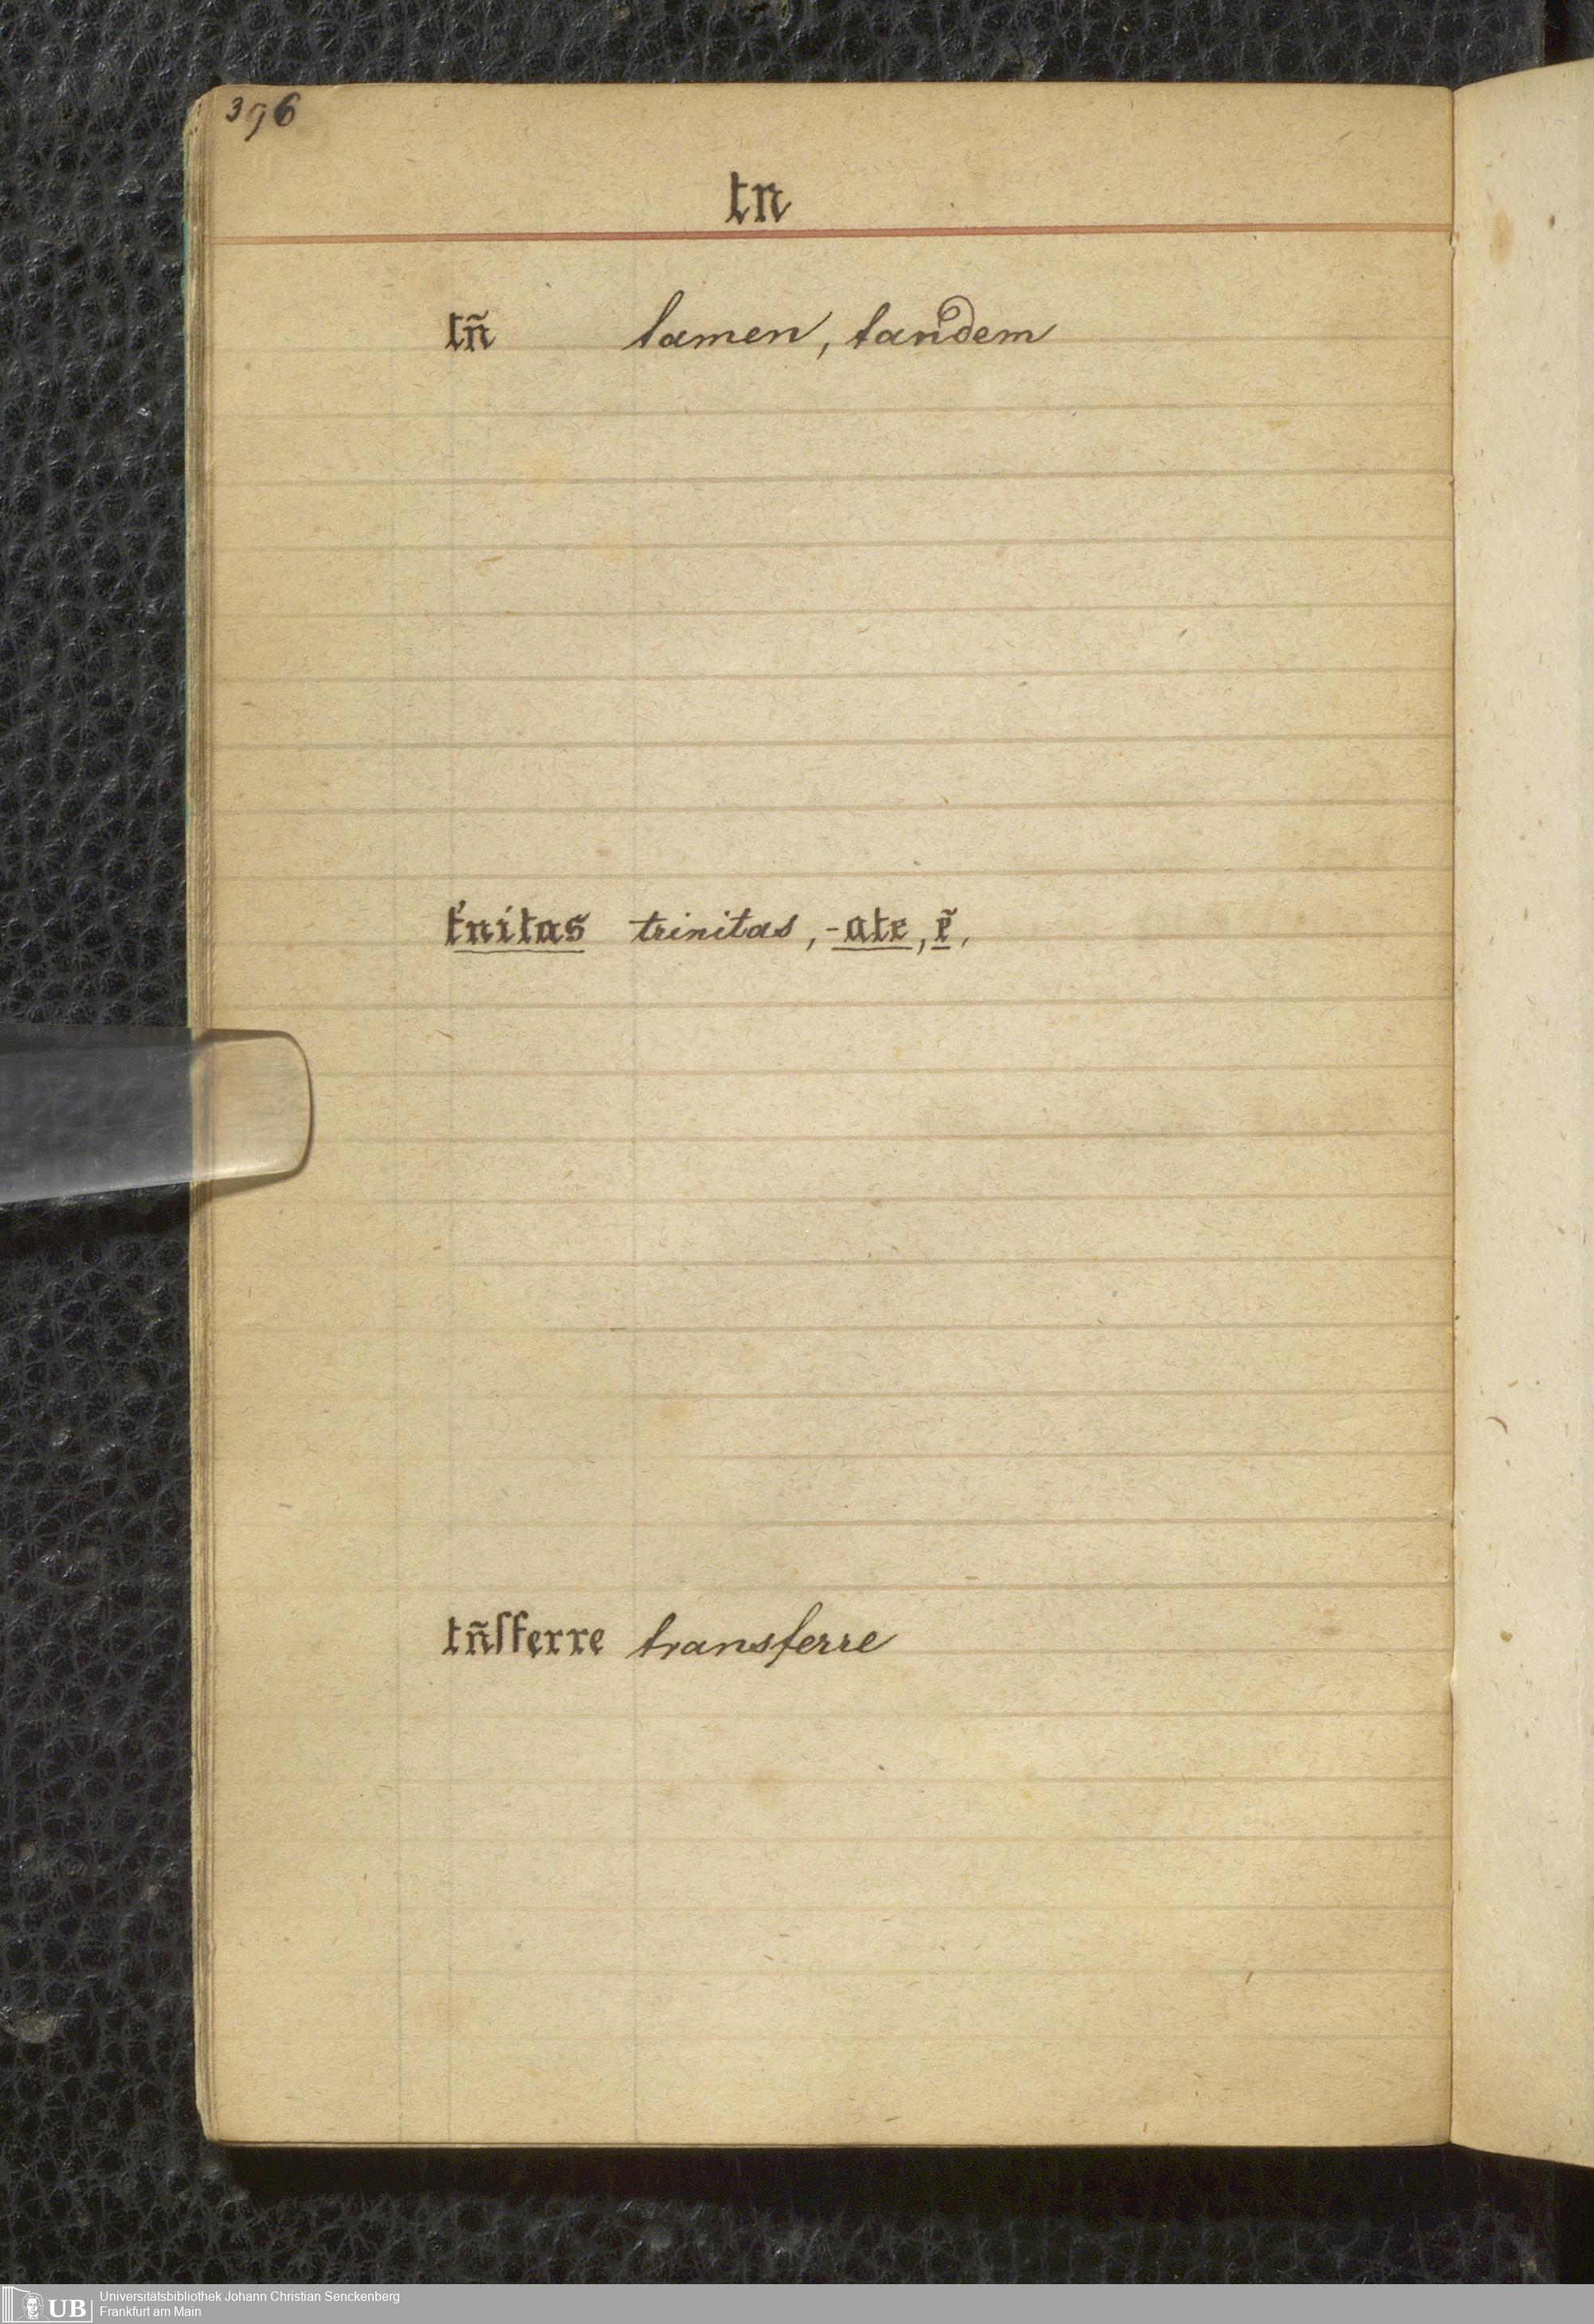 396
tn
tñ tamen, tandem
t'nitas trinitas, -ate, ẽ,
tñſferre transferre
UB Universitätsbibliothek Johann Christian Senckenberg
Frankfurt am Main